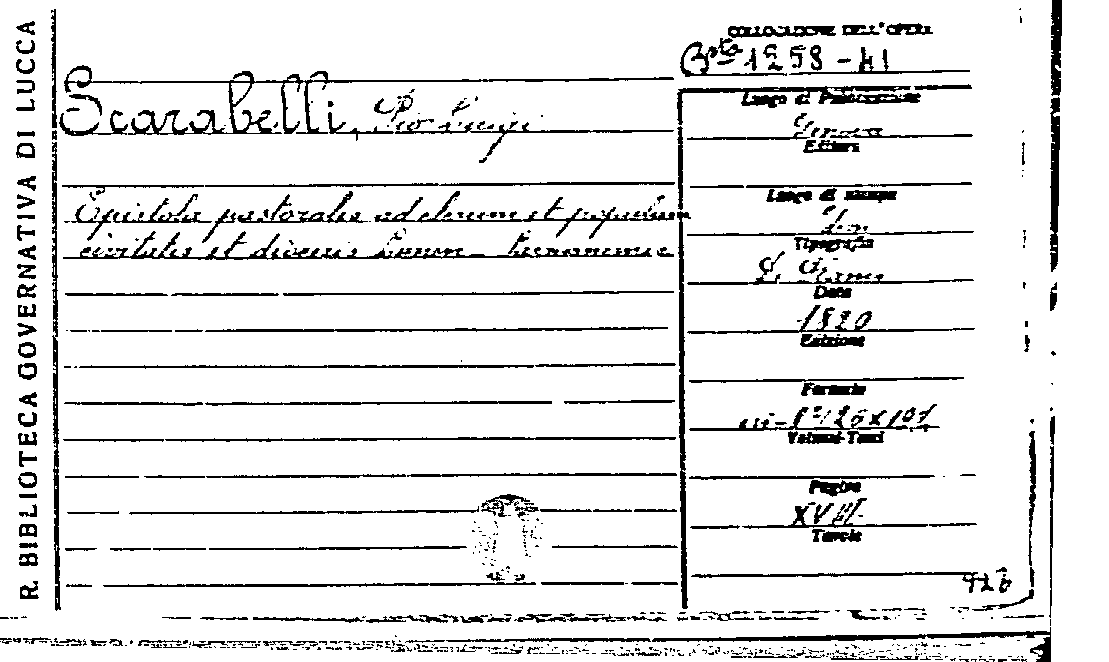 R. BIBLIOTECA GOVERNATIVA DI LUCCA
COLLOCAZIONE DELL'OPERA
Bta 1258-41
Scarabelli, Pio Luigi
Epistola pastoralis ad clerum et populum
civitatis et diocesis Lunen
Luogo di Pubblicazione
Genova
Editore
Luogo di stampa
Tipografia
Data
1820
Edizione
Formato
in-8°
Volumi-Tomi
Pagine
XVIII
Tavole